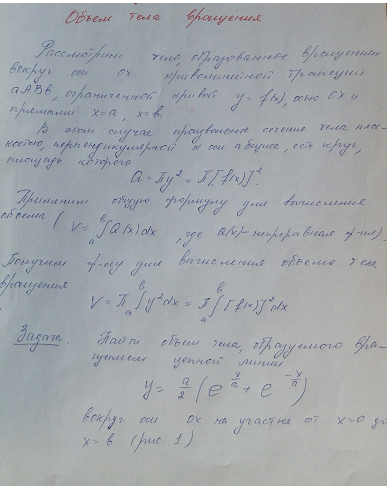 Объем тела вращения
Рассмотрим тело, образованное вращением
вокруг оси Ox криволинейной трапеции
aABb, ограниченной кривой y = f(x), осью Ox и
прямыми x=a, x=b.
В этом случае произвольное сечение тела плос-
костью, перпендикулярной к оси абсцисс, есть круг,
площадь которого
Q = Πy² = Π[f(x)]².
Применим общую формулу для вычисления
объема (V = ∫ₐᵇ Q(x)dx, где Q(x) - непрерывная ф-ия).
Получим ф-лу для вычисления объема тела
вращения
V = Π ∫ₐᵇ y²dx = Π ∫ₐᵇ [f(x)]²dx
Задача. Найти объем тела, образуемого вра-
щением цепной линии
y = a/2 (e^(x/a) + e^(-x/a))
вокруг оси Ox на участке от x=0 до
x = b (рис. 1)